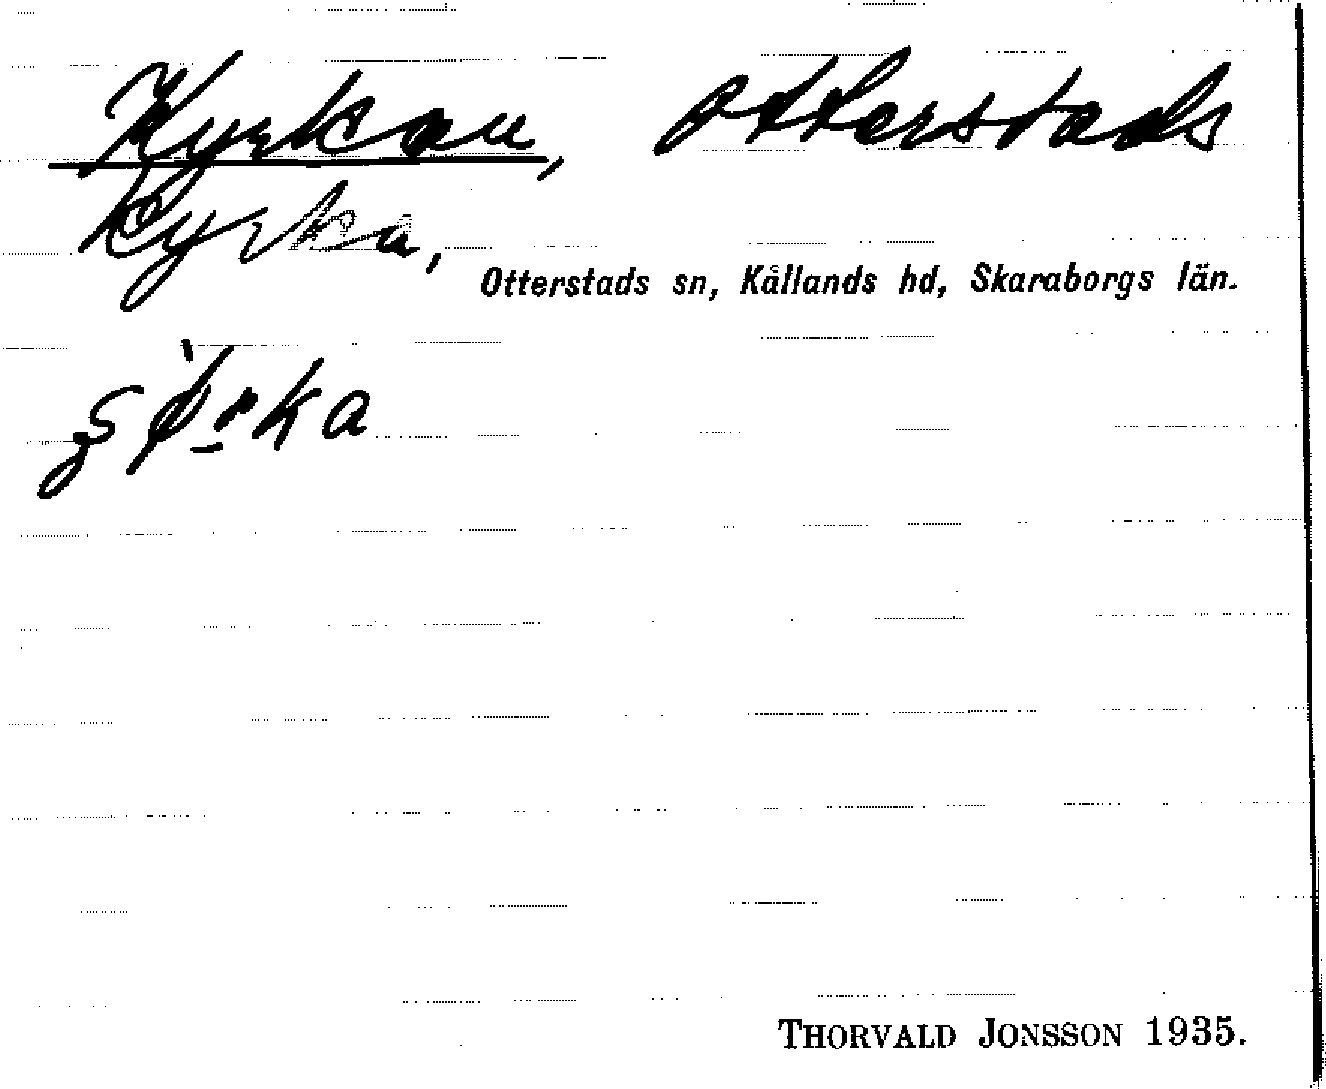 Kyrkan, Otterstads
Kyrka,
Otterstads sn, Kållands hd, Skaraborgs län.
THORVALD JONSSON 1935.